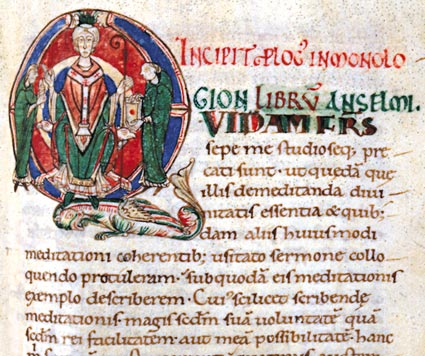 INCIPIT PLOG' IN MONOLO
GION LIBRŪ ANSELMI.
QUIDAM FRS
sepe me studioseq; pre
cati sunt. ut quedā que
illis de meditanda divi
nitatis essentia & quib;
dam aliis huiusmodi
meditationi coherentib; usitato sermone collo
quendo protuleram. sub quodā eis meditationis
exemplo describerem. Cui' scilicet scribendę
meditationis magis scdm suā voluntatē quā
scdm rei facilitatem aut meā possibilitatē hanc